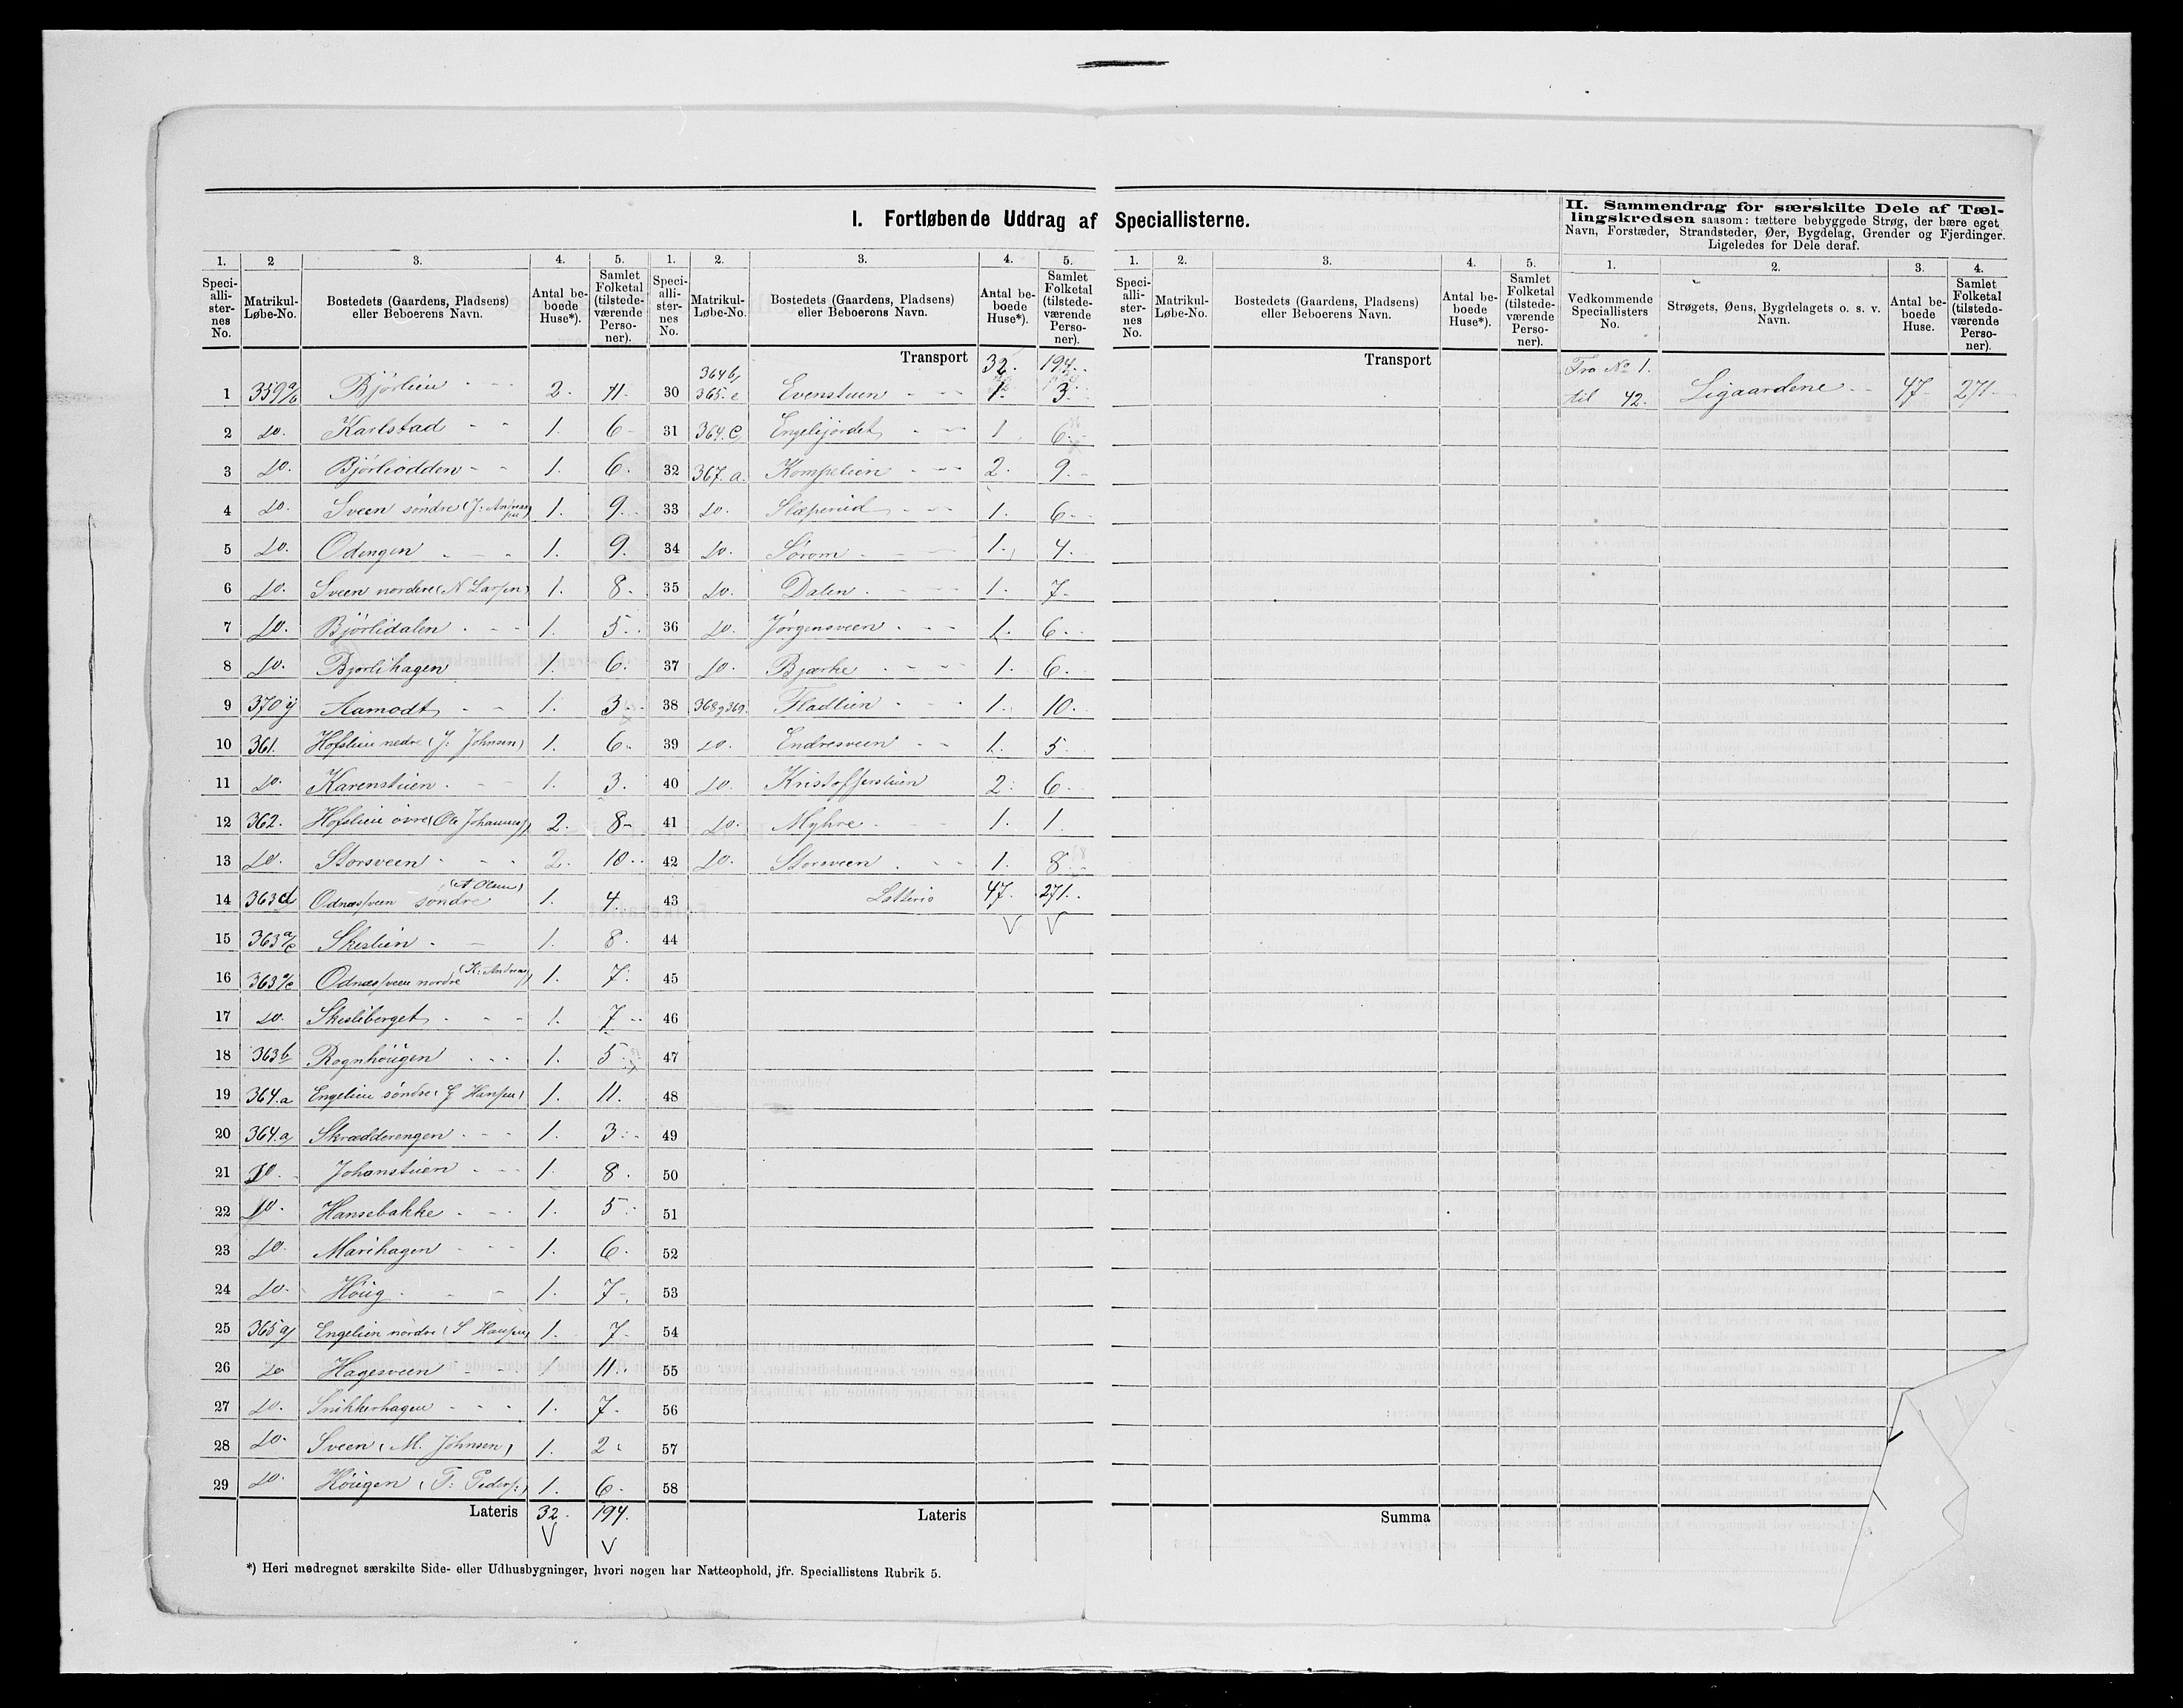 I. Fortløbende Uddrag af Speciallisterne.
II. Sammendrag for særskilte Dele af Tællingskredsen saasom: tættere bebyggede Strøg, der bære eget Navn, Forstæder, Strandsteder, Øer, Bygdelag, Grender og Fjerdinger. Ligeledes for Dele deraf.
1. 2 3. 4. 5. 1. 2. 3. 4. 5. 1. 2. 3. 4. 5. 1. 2. 3. 4.
Speciallisternes No. Matrikul-Løbe-No. Bostedets (Gaardens, Pladsens) eller Beboerens Navn. Antal beboede Huse*). Samlet Folketal (tilstedeværende Personer).
Speciallisternes No. Matrikul-Løbe-No. Bostedets (Gaardens, Pladsens) eller Beboerens Navn. Antal beboede Huse*). Samlet Folketal (tilstedeværende Personer).
Speciallisternes No. Matrikul-Løbe-No. Bostedets (Gaardens, Pladsens) eller Beboerens Navn. Antal beboede Huse*). Samlet Folketal (tilstedeværende Personer).
Vedkommende Speciallisters No. Strøgets, Øens, Bygdelagets o. s. v. Navn. Antal beboede Huse. Samlet Folketal (tilstedeværende Personer).
1 359 a/b Bjørlien 2. 11.
2 Do. Karlstad 1. 6
3 Do. Bjørliodden 1. 6.
4 Do. Sveen søndre 1. 9.
5 Do. Odengen 1. 9.
6 Do. Sveen nordere (N Larsen) 1. 8.
7 Do. Bjørlidalen 1. 5.
8 Do. Bjørlihagen 1. 6.
9 370 Aamodt 1. 3
10 361. Hofslien nedre (J. Johnsen) 1. 6.
11 Do. Karenstuen 1. 3.
12 362. Hofslien øvre (Ole Johannes) 2. 8
13 Do. Storsveen 2. 10.
14 363 d Odnæssveen søndre (A Olsen) 1. 4.
15 363 a/c Skeslien 1. 8.
16 363 Odnæssveen nordre 1. 7.
17 Do. Skesliberget 1. 7
18 363 b Rognhøugen 1. 5
19 364. a Engelien søndre Hansen 1. 11.
20 364. a Skrædderengen 1. 3.
21 Do. Johanstuen 1. 8.
22 Do. Hansebakke 1. 5
23 Do. Marihagen 1. 6.
24 Do. Høug 1. 7
25 365 a Engelien nordre (S Hansen) 1. 7
26 Do Hagesveen 1 11.
27 Do. Snikkerhagen 1. 7.
28 Do. Sveen (M. Johnsen) 1. 2
29 Do. Høugen (T. Peders.) 1. 6.
Lateris 32. 194.
Transport 32. 194.
30 364 b, 365. c Evenstuen 1. 3.
31 364. c Engelijordet 1 6.
32 367. a. Kompelien 2. 9.
33 Do. Slæperud 1. 6.
34 Do. Sørom 1. 4.
35 Do. Dalen 1. 7.
36 Do. Jørgensveen 1. 6.
37 Do. Bjærke 1. 6.
38 368, 369. Fladlien 1. 10.
39 Do. Endresveen 1. 5
40 Do. Kristofferstuen 2. 6.
41 Do. Myhre 1. 1
42 Do. Storsveen 1. 8.
43 Latteris 47. 271.
44
45
46
47
48
49
50
51
52
53
54
55
56
57
58
Lateris
Transport
Summa
Fra No 1.
til 42. Ligaardene 47 271
*) Heri medregnet særskilte Side- eller Udhusbygninger, hvori nogen har Natteophold, jfr. Speciallistens Rubrik 5.